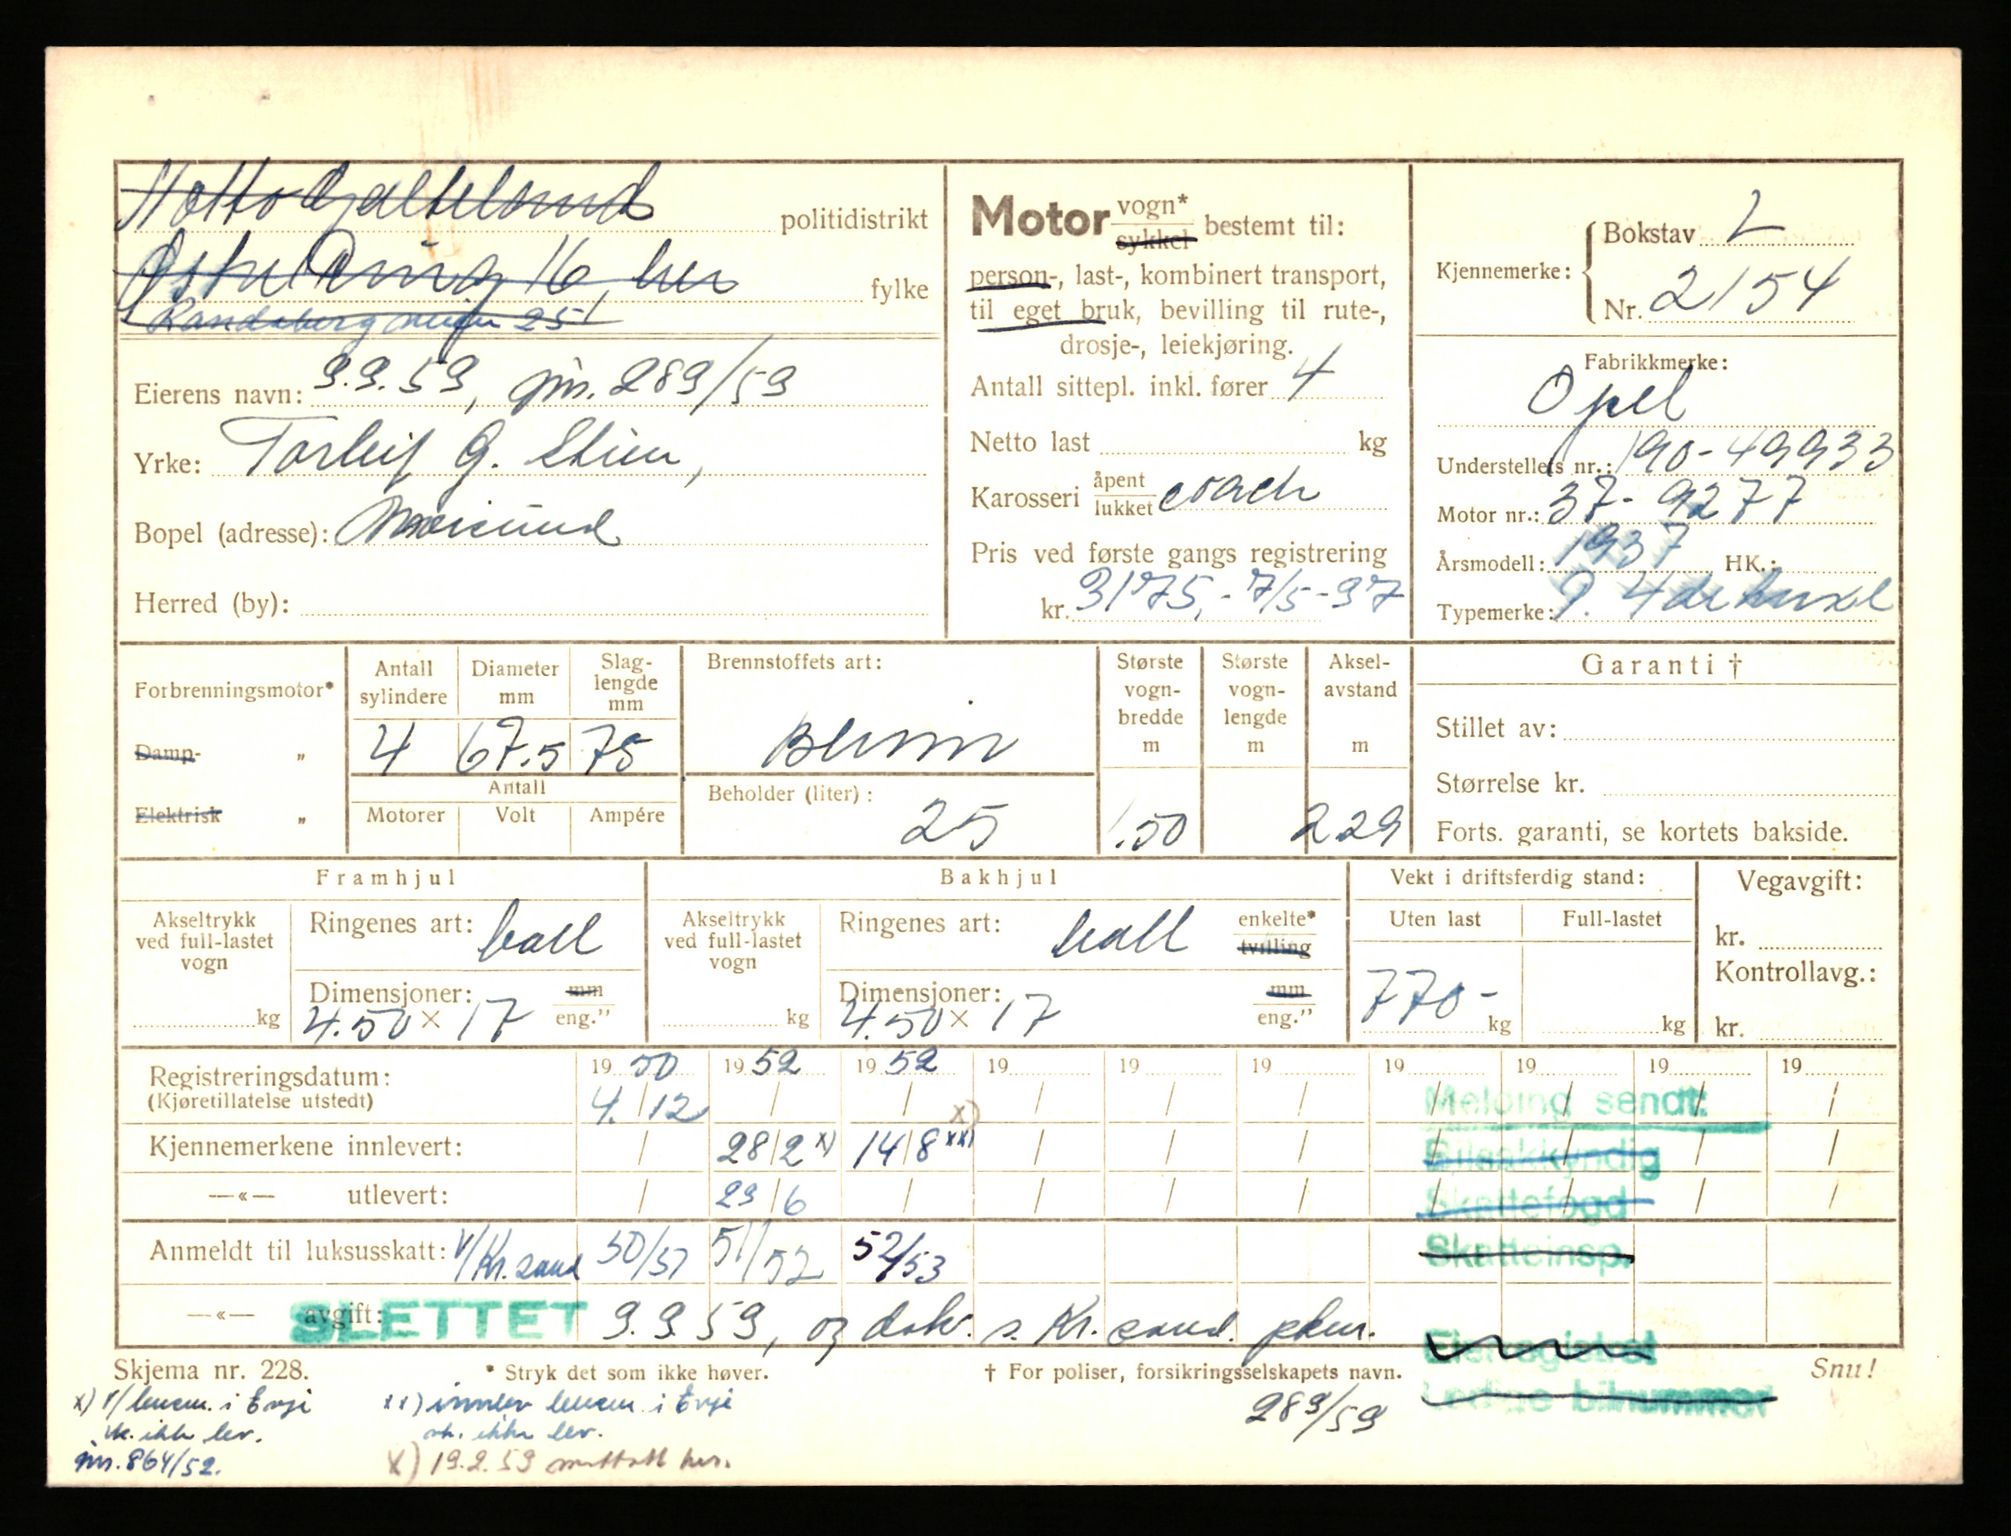 politidistrikt
16, her
fylke
25
Eierens navn: 9.9.59, jnr. 289/59
Yrke: Torleif G. Stien,
Bopel (adresse):
Herred (by):
Motor vogn* sykkel bestemt til:
person-, last-, kombinert transport,
til eget bruk, bevilling til rute-,
drosje-, leiekjøring.
Antall sittepl. inkl. fører 4
Netto last kg
Karosseri åpent lukket coach
Pris ved første gangs registrering
kr. 3175,- 7/5-37
Kjennemerke: Bokstav L
Nr. 2154
Fabrikkmerke:
Opel
Understellets nr.: 190-49933
Motor nr.: 37-9277
Årsmodell: 1937 HK.:
Typemerke: 9. 4 de luxe
Forbrenningsmotor*
Damp- „
Elektrisk „
Antall sylindere Diameter mm Slag-lengde mm
4 67.5 75
Antall
Motorer Volt Ampére
Brennstoffets art:
Bensin
Beholder (liter): 25
Største vogn-bredde m
1.50
Største vogn-lengde m
Aksel-avstand m
2.29
Garanti †
Stillet av:
Størrelse kr.
Forts. garanti, se kortets bakside.
Framhjul
Akseltrykk ved full-lastet vogn
kg
Ringenes art: ball
Dimensjoner: mm
4.50 × 17 eng."
Bakhjul
Akseltrykk ved full-lastet vogn
kg
Ringenes art: ball enkelte* tvilling
Dimensjoner: mm
4.50 × 17 eng."
Vekt i driftsferdig stand:
Uten last Full-lastet
770- kg kg
Vegavgift:
kr.
Kontrollavg.:
kr.
19 50 19 52 19 52 19 19 19 19 19 19 19
Registreringsdatum: 4./12 / / / / / / / / /
(Kjøretillatelse utstedt)
x)
Kjennemerkene innlevert: / 28/2 x) 14/8 xx) / / / / / / /
—«— utlevert: / 23/6 / / / / / / / /
Anmeldt til luksusskatt: v/Kr.sand 50/51 51/52 52/53
—«— avgift: SLETTET 9.9.59, og dok. s. Kr.sand pkm.
Melding sendt:
Bilsakkyndig
Skattefogd
Skatteinsp.
Skjema nr. 228. * Stryk det som ikke høver. † For poliser, forsikringsselskapets navn. Snu!
289/59
x) v/lensm. i Evje
vk. ikke lev.
jnr. 864/52.
xx) innlev lensm. i Evje
vk. ikke lev.
x) 19.2.59 mottatt her.